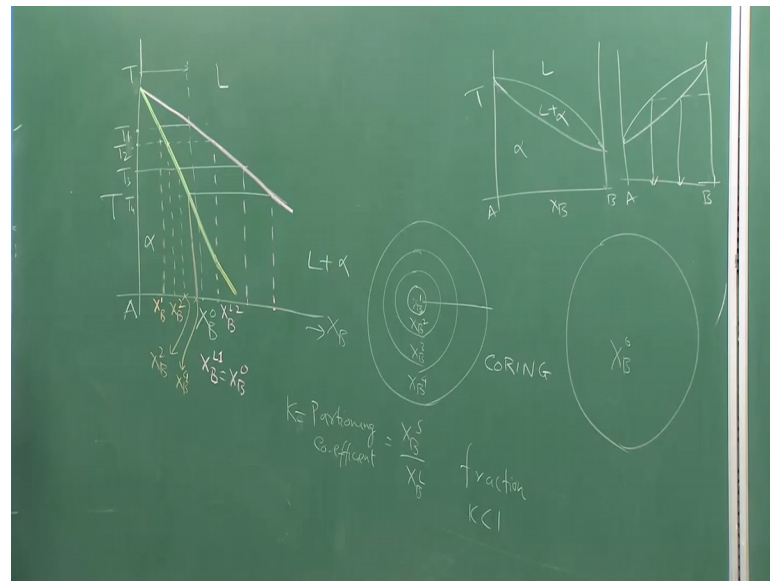 T
L
T1
T2
T3
T T4
α
L+α
A
→ X_B
X_B^1 X_B^2 X_B^0 X_B^L2
X_B^L1 = X_B^0
L
T
L+α
α
A X_B B
A B
X_B^2
X_B^3
X_B^4
CORING
K = Partioning
Co-efficient = X_B^S / X_B^L
fraction
K<1